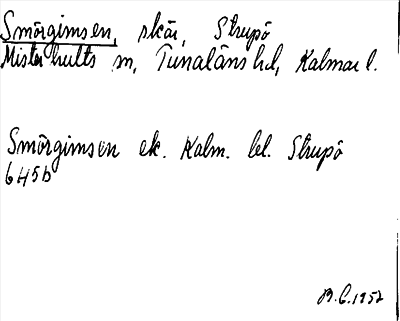 Smörgimsen, skär, Strupö
Misterhults sn, Tunaläns hd, Kalmar l.
Smörgimsen ek. Kalm. bl. Strupö
645b
B.C. 1952